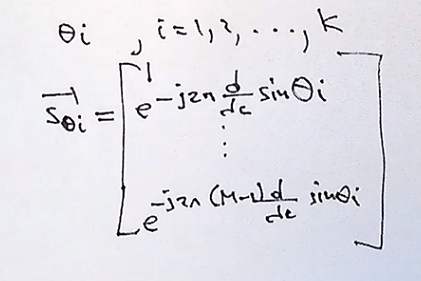 θi , i=1,2,...,k
1
S⃗θi = e^-j2π d/dc sinθi
⋮
e^-j2π (M-1) d/dc sinθi